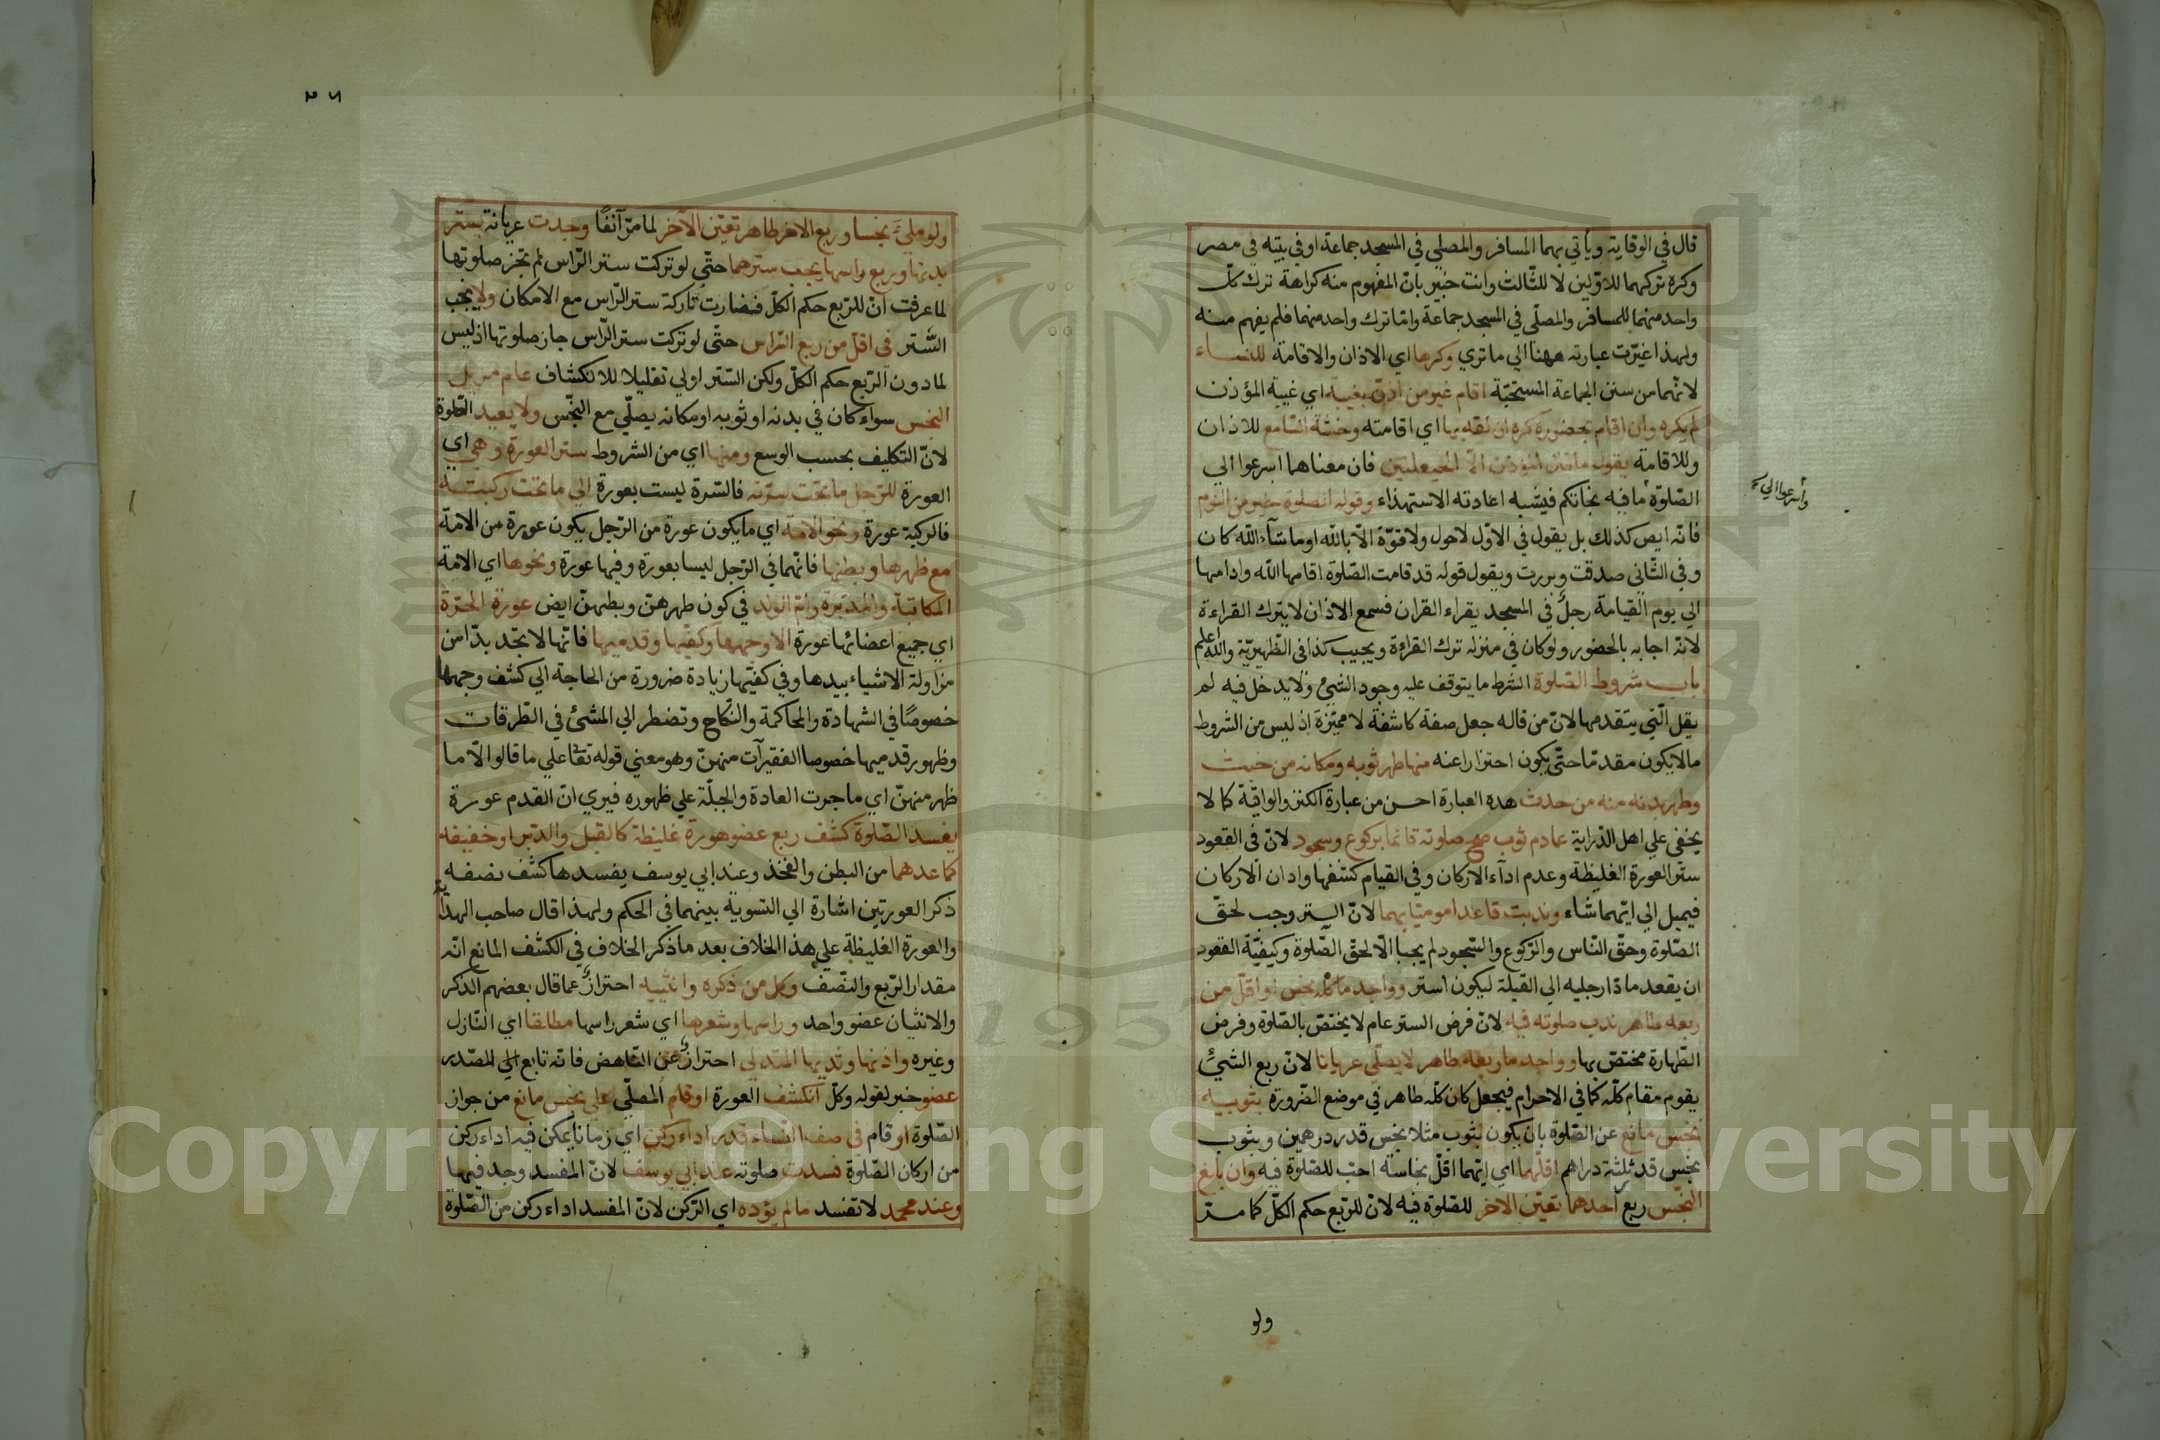 قال في الوقاية ويأتي بهما المسافر والمصلي في المسجد جماعة او في بيته في مصر
وكره تركهما للاوّلين لا للثّالث وانت خبير بانّ المفهوم منه كراهة ترك كلّ
واحد منهما للمسافر والمصلّي في المسجد جماعة وامّا ترك واحد منهما فلم يفهم منه
ولهذا غيّرت عبارته ههنا الي ما تري وكرها اي الاذان والاقامة للنساء
لانّهما من سنن الجماعة المستحبّة اقام غير من اذّن بغيبه اي غيبة المؤذن
لم يكره وان اقام بحضوره كره ان لحقه بها اي اقامته وحشة السّامع للاذان
وللاقامة يقول ما قال المؤذن الّا الحيعلتين فان معناهما اسرعوا الي
الصّلوة ما فيه نجاتكم فيشبه اعادته الاستهزاء وقوله الصلوة خير من النوم
فانه ايض كذلك بل يقول في الاوّل لاحول ولا قوّة الّا بالله او ما شآء الله كان
وفي الثّاني صدقت وبررت ويقول قوله قد قامت الصّلوة اقامها الله وادامها
الي يوم القيامة رجلٌ في المسجد يقراء القران فسمع الاذان لا يترك القراءة
لانّه اجابه بالحضور ولو كان في منزله ترك القراءة ويجيب كذا في الظّهيريّة والله اعلم
باب شروط الصّلوة الشرط ما يتوقف عليه وجود الشيئ ولا يدخل فيه لم
يقل الّتي يتقدمها لانّ من قاله جعل صفة كاشفة لا مميّزة اذ ليس من الشروط
مالا يكون مقدمّا حتّي يكون احترازا عنه منها طهر ثوبه ومكانه من خبث
وطهر بدنه منه من حدث هذه العبارة احسن من عبارة الكنز والواقية كما لا
يخفي علي اهل الدّراية عادم ثوب صح صلوته قائما بركوع وسجود لانّ في القعود
ستر العورة الغليظة وعدم ادآء الاركان وفي القيام كشفها وادان الاركان
فيميل الي ايّهما شاء وندبت قاعدا موميّا بهما لانّ الستر وجب لحقّ
الصّلوة وحقّ النّاس والرّكوع والسّجود لم يجبا الّا لحقّ الصّلوة وكيفيّة القعود
ان يقعد مادّا رجليه الي القبلة ليكون استر وواجد ما كلّه نجس او اقلّ من
ربعه طاهر ندب صلوته فيه لانّ فرض الستر عام لا يختصّ بالصّلوة وفرض
الطّهارة مختصّ بها وواجد ما ربعه طاهر لا يصلّي عريانا لانّ ربع الشيئ
يقوم مقام كلّه كما في الاحرام فيجعل كان كلّه طاهر في موضع الضّرورة بثوبيه
نجس مانع عن الصّلوة بان يكون بثوب مثلا نجس قدر درهمين وبثوب
نجس قد ثلثة دراهم اقلّهما اي ايّهما اقلّ نجاسته احبّ للصّلوة فيه وان بلغ
النّجس ربع احدهما تعيّن الآخر للصّلوة فيه لانّ للرّبع حكم الكلّ كما مرّ
واسرعوا الي
ولو
٢٦
ولو ملئ نجسا وربع الاخر طاهر تعيّن الآخر لما مرّ آنفًا وجدت عريانة يستر
بدنها وربع راسها يجب سترهما حتّي لو تركت ستر الرّاس لم تجز صلوتها
لما عرفت انّ للرّبع حكم الكلّ فصارت تاركة ستر الرّاس مع الامكان ولا يجب
السّتر في اقلّ من ربع الرّاس حتّي لو تركت ستر الرّاس جاز صلوتها اذ ليس
لما دون الرّبع حكم الكلّ ولكن السّتر اولي تقليلا للانكشاف عادم مزيل
النجس سواء كان في بدنه او ثوبه او مكانه يصلّي مع النّجس ولا يعيد الصّلوة
لانّ التكليف بحسب الوسع ومنها اي من الشروط ستر العورة وهي اي
العورة للرّجل ما تحت سرّته فالسّرة ليست بعورة الي ما تحت ركبته
فالركبة عورة ونحو الامة اي ما يكون عورة من الرّجل يكون عورة من الامّة
مع ظهرها وبطنها فانّهما في الرّجل ليسا بعورة وفيها عورة ونحوها اي الامة
المكاتبة والمدبّرة وامّ الولد في كون ظهرهنّ وبطنهنّ ايض عورة الحرّة
اي جميع اعضائها عورة الا وجهها وكفّيها وقدميها فانّها لا تجد بدّا من
مزاولة الاشياء بيدها وفي كفّيها زيادة ضرورة من الحاجة الي كشف وجهها
خصوصًا في الشهادة والمحاكمة والنكاح وتضطر الي المشئ في الطّرقات
وظهور قدميها خصوصا الفقيرآت منهنّ وهو معني قوله تعا علي ما قالوا الّا ما
ظهر منهنّ اي ما جرت العادة والجبلّة علي ظهوره فيري انّ القدم عورة
يفسد الصّلوة كشف ربع عضو هو عورة غليظة كالقبل والدّبر او خفيفه
كما عدهما من البطن والفخذ وعند ابي يوسف يفسدها كشف نصفه
ذكر العورتين اشارة الي التسوية بينهما في الحكم ولهذا قال صاحب الهداية
والعورة الغليظة علي هذا الخلاف بعد ما ذكر الخلاف في الكشف المانع انّه
مقدار الرّبع والنّصف وكل من ذكره وانثييه احترازٌ عمّا قال بعضهم الذّكر
والانثيان عضو واحد وراسها وشعرها اي شعر راسها مطلقا اي النّازل
وغيره واذنها وثديها المتدلي احترازٌ عن النّاهض فانّه تابع الي للصّدر
عضو خبر لقوله وكلّ انكشف العورة او قام المصلّي علي نجس مانع من جواز
الصّلوة او قام في صف النّساء قدر اداء ركن اي زمانا يمكن فيه اداء ركن
من اركان الصّلوة فسدت صلوته عند ابي يوسف لانّ المفسد وجد فيها
وعند محمد لا تفسد ما لم يؤده اي الرّكن لانّ المفسد اداء ركن من الصّلوة
Copyright © King Saud University
1957